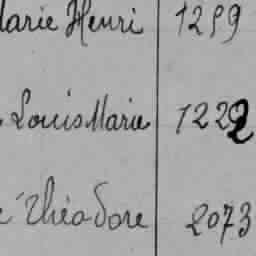 Marie Henri 1259
Louis Marie 1222
Théodore 2073